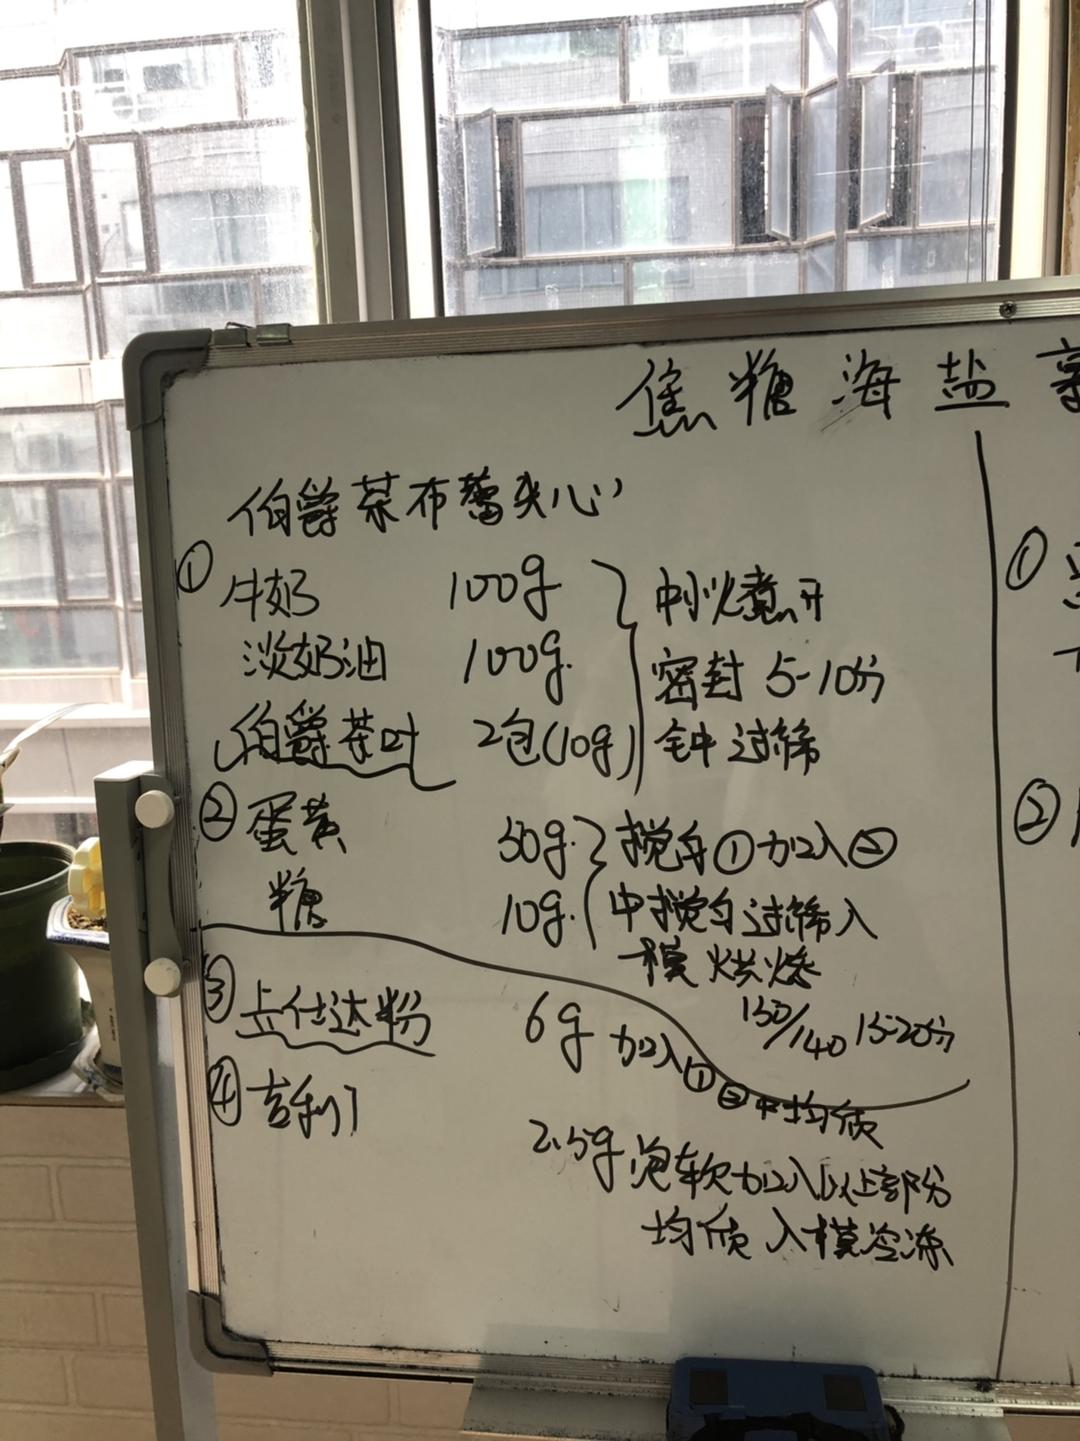 焦糖海盐
伯爵茶布蕾夹心
① 牛奶 100g 中小火煮开
淡奶油 100g. 密封 5-10分
伯爵茶叶 2包(10g) 钟 过筛
② 蛋黄 30g. 搅匀①加入②
糖 10g. 中搅匀过筛入
模 烘烤
150/140 15-20分
③ 吉仕达粉 6g 加入①②中均质
④ 吉利丁 2.5g 泡软加入以上部分
均质 入模冷冻
①
②